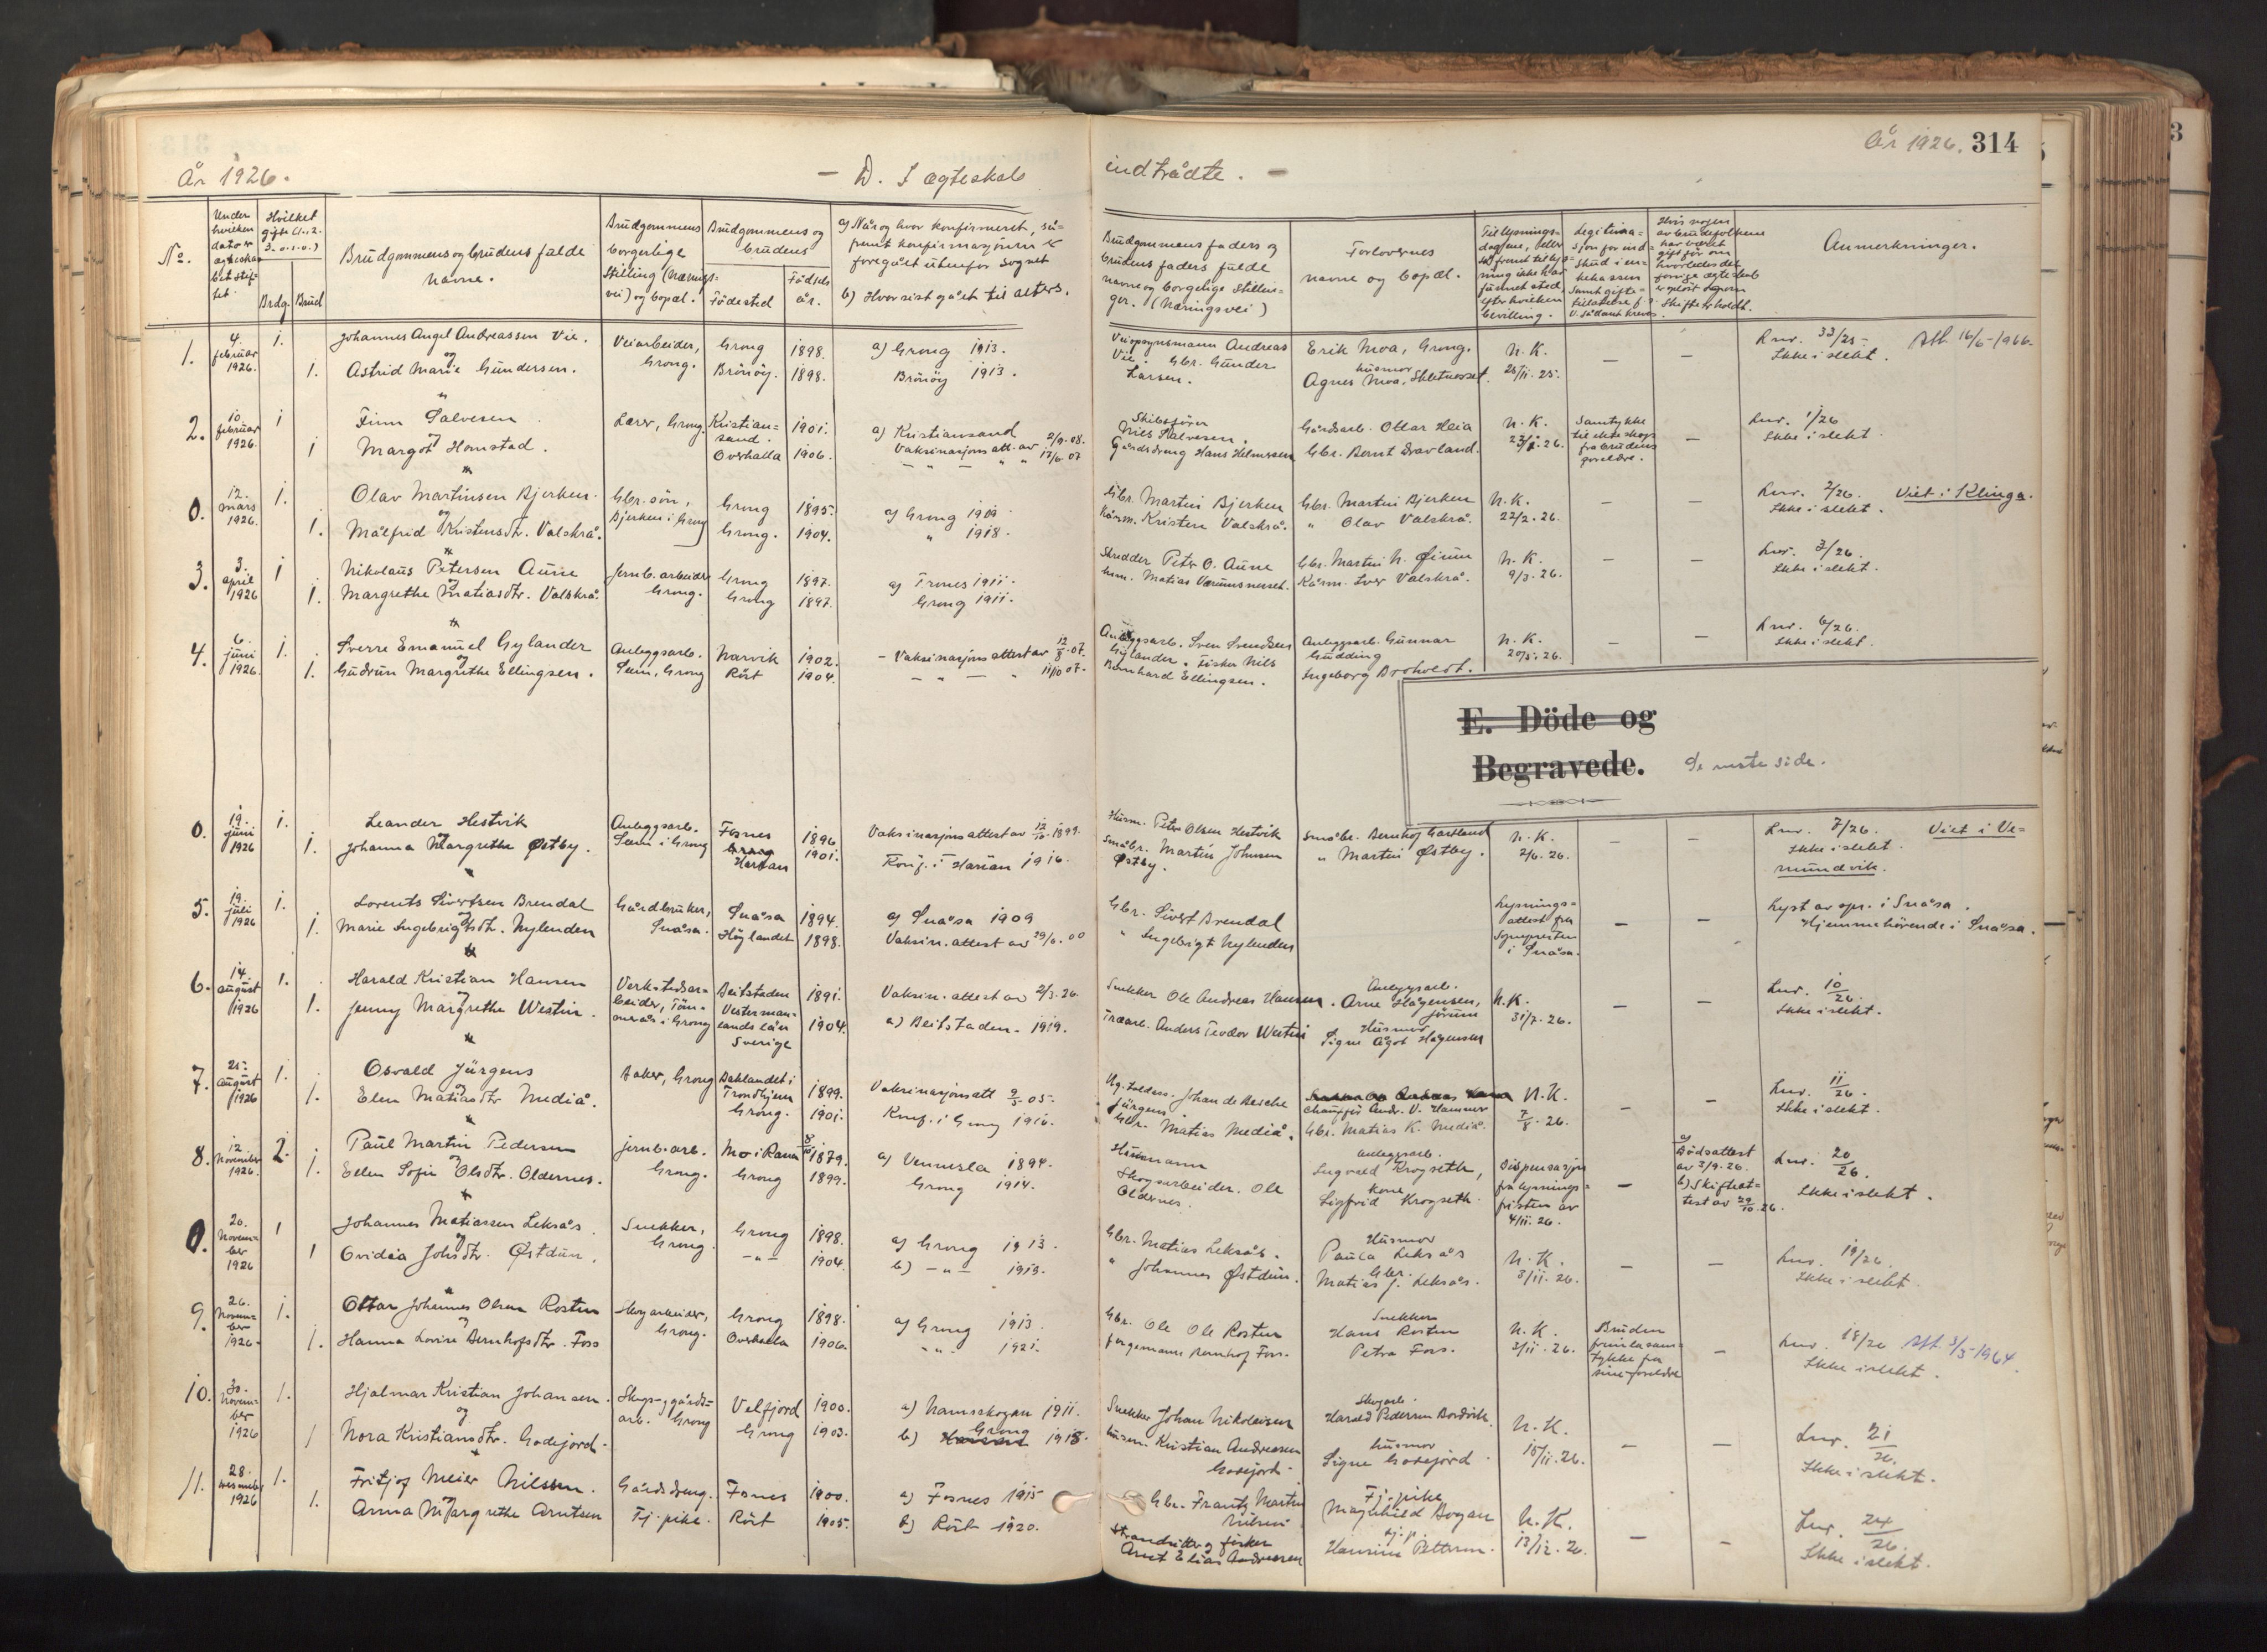 År 1926.
– D. I ægteskab
indtrådte. –
År 1926. 314
No.
Under hvilken dato er ægteskabet stiftet.
Hvilket gifte (1.-2. 3. o.s.v.)
Brdg. Brud
Brudgommens og brudens fulde navne.
Brudgommens borgerlige stilling (næringsvei) og bopæl.
Brudgommens og brudens
Fødested
Fødselsår.
a) Når og hvor konfirmeret, såfremt konfirmasjonen er foregået utenfor sognet
b) Hvor sist gået til alters.
Brudgommens faders og brudens faders fulde navne og borgelige stillinger. (Næringsvei)
Forlovernes navne og bopæl.
Anmerkninger.
1. 4. februar 1926. 1. Johannes Angel Andreassen Vie. Veiarbeider, Grong. Grong 1898. a) Grong 1913.
og
1. Astrid Marie Gundersen. Brönöy. 1898. Brönöy 1913.
Veiopsynsmann Andreas Vie. Gbr. Gunder Larsen.
Erik Moa, Grong. husmor Agnes Moa,
N.K. 25/11.25. – –
Lnr. 33/25 Ikke i slekt. Att. 16/6-1966.
2. 10. februar 1926. 1 Finn Salvesen Lærer, Grong. Kristiansand. 1901. a) Kristiansand
og
1 Margot Homstad. Overhalla 1906. Vaksinasjons att. av
Skibsfører Nils Salvesen. Gårdsdreng Hans Helmersen
Gårdsarb. Ottar Heia Gbr. Bernt Dravland.
N.K. 23/1.26. Samtykke til ekteskap fra brudens foreldre. –
Lnr. 1/26 Ikke i slekt.
0. 12. mars 1926. 1. Olav Martinsen Bjerken. Gbr. sön, Bjerken i Grong Grong 1895. a) Grong 1909
og
1. Målfrid Kristensdtr. Valskrå. Grong. 1904. " 1918.
Gbr. Martin Bjerken Kårm. Kristen Valskrå.
Gbr. Martin Bjerken " Olav Valskrå.
N.K. 22/2.26. – –
Lnr. 2/26. Ikke i slekt. Viet i Klinga.
3. 3. april 1926 1 Nikolaus Petersen Aune Jernb.arbeider Grong. Grong 1897. a) Trones 1911.
og
1. Margrethe Matiasdtr. Valskrå. Grong 1897. Grong 1911.
Skredder Peter O. Aune hm. Matias
Gbr. Martin N. Kårm. Iver Valskrå.
N.K. 9/3.26. – –
Lnr. 3/26. Ikke i slekt.
4. 6. juni 1926. 1. Sverre Emanuel Gylander Anleggsarb. Seem, Grong Narvik 1902. – Vaksinasjons attest av 12/8.07.
og
1. Gudrun Margrethe Ellingsen. Röst 1904. – " – " 11/10 07.
Anleggsarb. Sven Svendsen Gylander. Fisker Nils Bernhard Ellingsen.
Anleggsarb. Gunnar Gudding Ingeborg Broholdt.
N.K. 20/5.26. – –
Lnr. 6/26. Ikke i slekt.
E. Döde og
Begravede. Se neste side.
0. 19. juni 1926 1. Leander Hestvik Anleggsarb. Seem i Grong Fosnes 1896 Vaksinasjons attest av 12/10.1899.
og
1. Johanna Margrethe Østby. Harran 1901. Konf. i Harran 1916.
Husm. Peter Olsen Hestvik Småbr. Martin Johnsen Østby.
Småbr. Bernhof Gartland " Martin Østby.
N.K. 2/6.26. – –
Lnr. 7/26. Ikke i slekt. Viet i Vemundvik.
5. 19. juli 1926 1. Lorents Sivertsen Brendal Gårdbruker, Snåsa. Snåsa 1894. a) Snåsa 1909
og
1. Marie Ingebrigtsdtr. Nylenden Höylandet 1898. Vaksin. attest av 29/6.00
Gbr. Sivert Brendal " Ingebrigt Nylenden
Lysningsattest fra Sognepresten i Snåsa. – –
Lyst av spr. i Snåsa. Hjemmehörende i Snåsa.
6. 14. august 1926 1. Harald Kristian Hansen Verkstedsarbeider, Tömmerås i Grong Beitstaden 1891. Vaksin. attest av 2/3.26.
og
1. Jenny Margrethe Westin. Vestermanlands län Sverige 1904. a) Beitstaden. 1919.
Snekker Ole Andreas Hansen. Träarb. Anders Teodor Westin
Anleggsarb. Arne Hågensen, Jörum Husmor Signe Ågot Hågensen
N.K. 31/7.26. – –
Lnr. 10/26. Ikke i slekt.
7. 25. august 1926 1. Osvald Jürgens Baker, Grong Baklandet i Trondhjem 1899. Vaksinasjonsatt 9/5 05.
og
1. Elen Matiasdtr Mediå. Grong. 1901. Konf. i Grong 1916.
Johan de Besche Jürgens. Gbr. Matias Mediå.
Chauffør Andr. V. Hammer Gbr. Matias K. Mediå.
N.K. 7/8.26. – –
Lnr. 11/26. Ikke i slekt.
8. 12 November 1926. 2. Paul Martin Pedersen Jernb.arb. Grong. Mo i Rana 1879. a) Vennesla 1894.
og
1. Ellen Sofie Olsdtr. Oldernes. Grong 1899. Grong 1914.
Husmann Skogsarbeider. Ole Oldernes.
Anleggsarb. Ingvald Krogseth, kone Sigfrid Krogseth.
Dispensasjon fra lysningsfristen av 4/11.26. –
a) Dödsattest av 3/9.26. b) Skifteattest av 29/10.26.
Lnr. 20/26. Ikke i slekt.
0. 20. November 1926 1 Johannes Matiassen Leksås Snekker, Grong. Grong 1898. a) Grong 1913.
og
1 Ovidia Johsdtr. Østdun. – " – 1904. b) – " – 1919.
Gbr. Matias Leksås. " Johannes Østdun.
Husmor Paula Leksås Gbr. Matias J. Leksås.
N.K. 3/11.26. – –
Lnr. 19/26. Ikke i slekt.
9. 26. November 1926. 1. Ottar Johannes Olsen Rosten Skogarbeider, Grong. Grong 1898. a) Grong 1913.
og
1. Hanna Lovise Bernhofsdtr. Foss Overhalla 1906. – " – 1921.
Gbr. Ole Ole Rosten Forgemann Bernhof Foss.
Snekker Hans Rosten Petra Foss.
N.K. 3/11.26. Bruden samtykke fra sine foreldre –
Lnr. 18/26 Att. 3/5-1964. Ikke i slekt.
10. 30. November 1926 1. Hjalmar Kristian Johansen. Skogs- og gårdsarb. Grong Velfjord 1900. a) Namsskogan 1911.
og
1 Nora Kristiansdtr. Godejord. Grong 1903. b) Grong 1918.
Snekker Johan Nikolaisen Husm. Kristian Andreasen Godejord.
Skogarb. Harald Pedersen husmor Signe Godejord.
N.K. 15/11.26. – –
Lnr. 21/26. Ikke i slekt.
11. 28. desember 1926 1. Fritjof Meier Nilssen. Gårdsdreng. Fosnes 1900. a) Fosnes 1915
og
1. Anna Margrethe Arntsen Tj.pike. Röst 1905. b) Röst 1920.
Gbr. Frantz Martin Nilsen Strandsitter og fisker Arnt Elias Andreassen
Tj.pike Magnhild Bogan Tj.p. Hansine Pettersen.
N.K. 13/12.26. – –
Lnr. 24/26. Ikke i slekt.